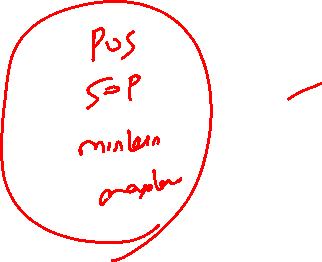 POS
SOP
minterm
maxterm